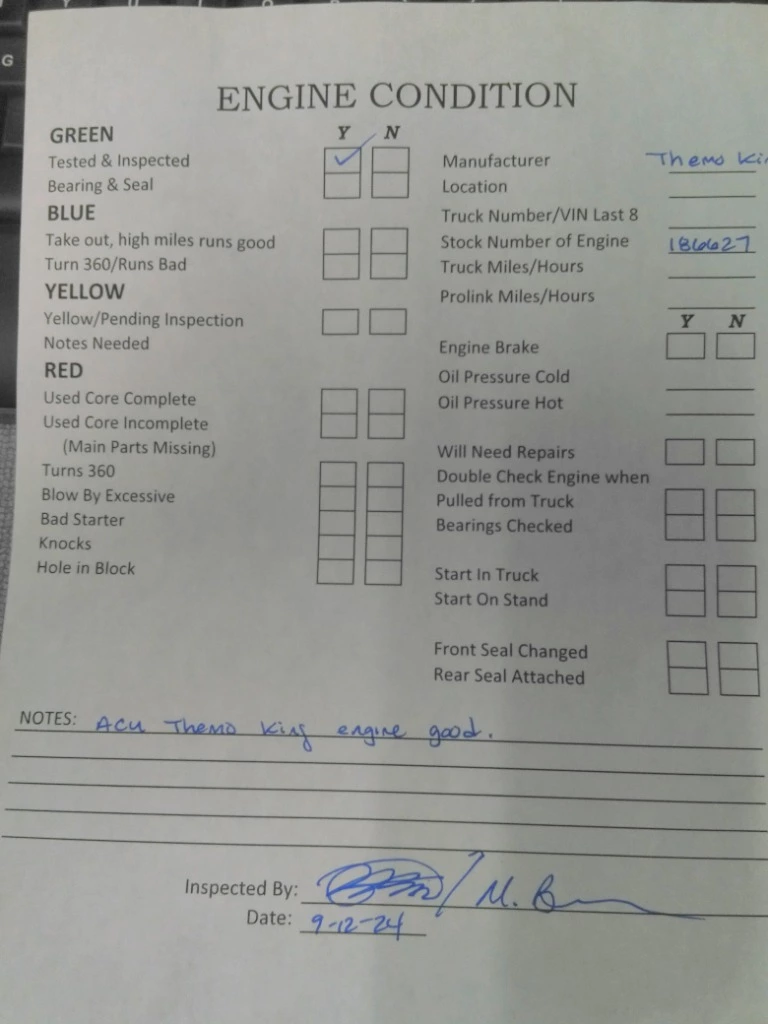 ENGINE CONDITION
GREEN Y N
Tested & Inspected
Bearing & Seal
BLUE
Take out, high miles runs good
Turn 360/Runs Bad
YELLOW
Yellow/Pending Inspection
Notes Needed
RED
Used Core Complete
Used Core Incomplete
(Main Parts Missing)
Turns 360
Blow By Excessive
Bad Starter
Knocks
Hole in Block
Manufacturer Themo Kin
Location
Truck Number/VIN Last 8
Stock Number of Engine 186627
Truck Miles/Hours
Prolink Miles/Hours
Y N
Engine Brake
Oil Pressure Cold
Oil Pressure Hot
Will Need Repairs
Double Check Engine when
Pulled from Truck
Bearings Checked
Start In Truck
Start On Stand
Front Seal Changed
Rear Seal Attached
NOTES: ACU Themo King engine good.
Inspected By: / M.
Date: 9-12-24